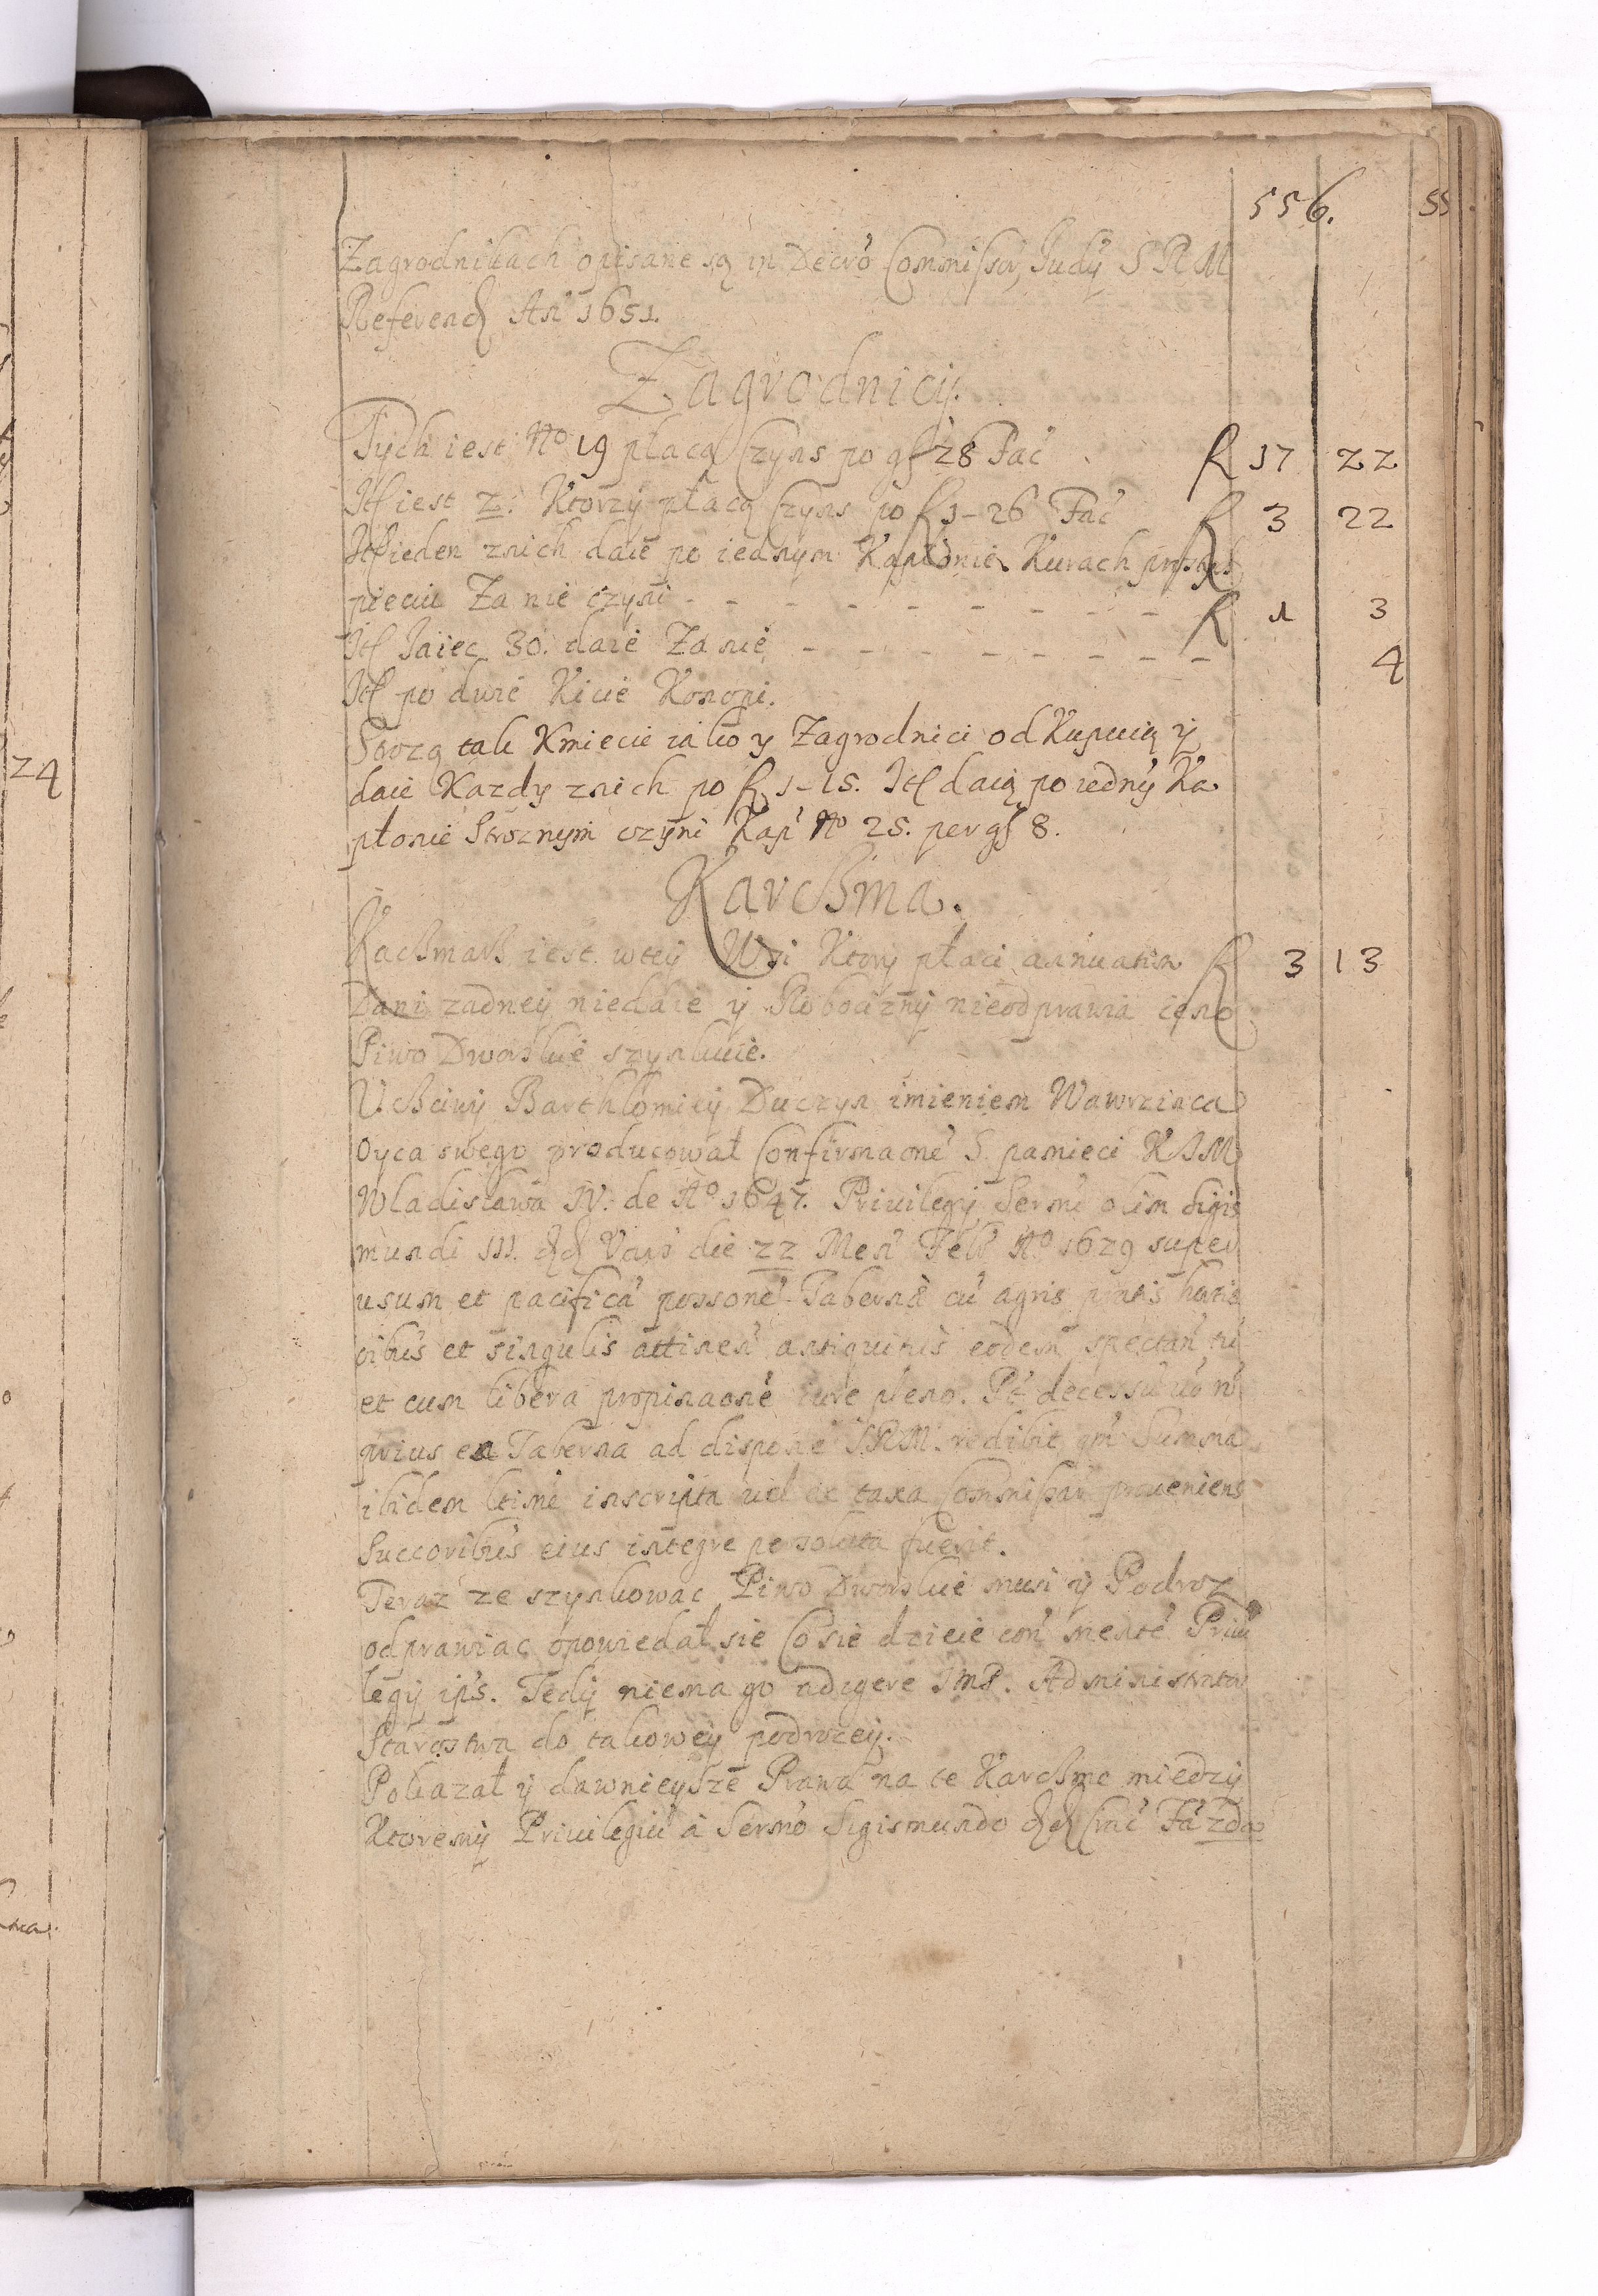 556.
Zagrodnikach opisane są in Decró Commissor, Judÿ S R M
Referend An 1651.
Zagrodnicÿ.
Tych iest No 19 płacą Czÿns po gś 28 Fać fl 17 22
Itē iest 2. Ktorzÿ płacą Czÿns po fl 1-26 Fać fl 3 22
Itē ieden znich daie po iednÿm Kapłonie Kurach
pieciu Za nie czÿni - - - - - - - fl 1 3
Itē Jaiec 30. daie Za nie - - - - - - - 4
Itē po dwie Kicie Konopi.
Strozą tak Kmiecie iako y Zagrodnici odKupuią ÿ
daie Kazdy znich po fl 1-15. Itē daią po iednÿ Ka
płonie Stroznÿm czÿni Kap No 25. per gś 8.
Karcßma.
Kacßmarß iest wteÿ Wsi Ktorÿ płaci annuatim fl 3 13
Dani zadneÿ niedaie ÿ Robociznÿ nieodprawia ieno
Piwo Dworskie szÿnkuie.
Ucßciwÿ Barthłomieÿ Duczÿn imieniem Wawrzinca
Oyca swego producował Confirmaoné S. pamieci K J M
Wladisława IV. de Ao 1647. Priuilegÿ Sermi olim Sigis
mundi III. dd Vars die 22 Men Feb Ao 1629 super
usum et pacificá possoné Taberna cú agris pratis hortis
oibús et singulis attinen antiquitús eodem spectan tú
et cum libera propinaoné iure pleno. Pt decessú uó n
prius ea Taberna ad dispone S.R.M. redibit qm Summa
ibidem ltimé inscripta uel ex taxa Commissar proueniens
Succoribús eius integre persoluta fuerit.
Teraz ze szÿnkowac Piwo Dworskie musi ÿ Podroz
odprawiac opowiedał sie Co sie dzieie con menté Priui
legÿ ips. Tedÿ niema go adigere JMP. Administrator
Starostwa do takoweÿ podrozeÿ.
Pokazał ÿ dawnieyße Prawa na te Karcßme miedzÿ
Ktoremÿ Priuilegiú á Sermó Sigismundo dd Crac Fá 2da